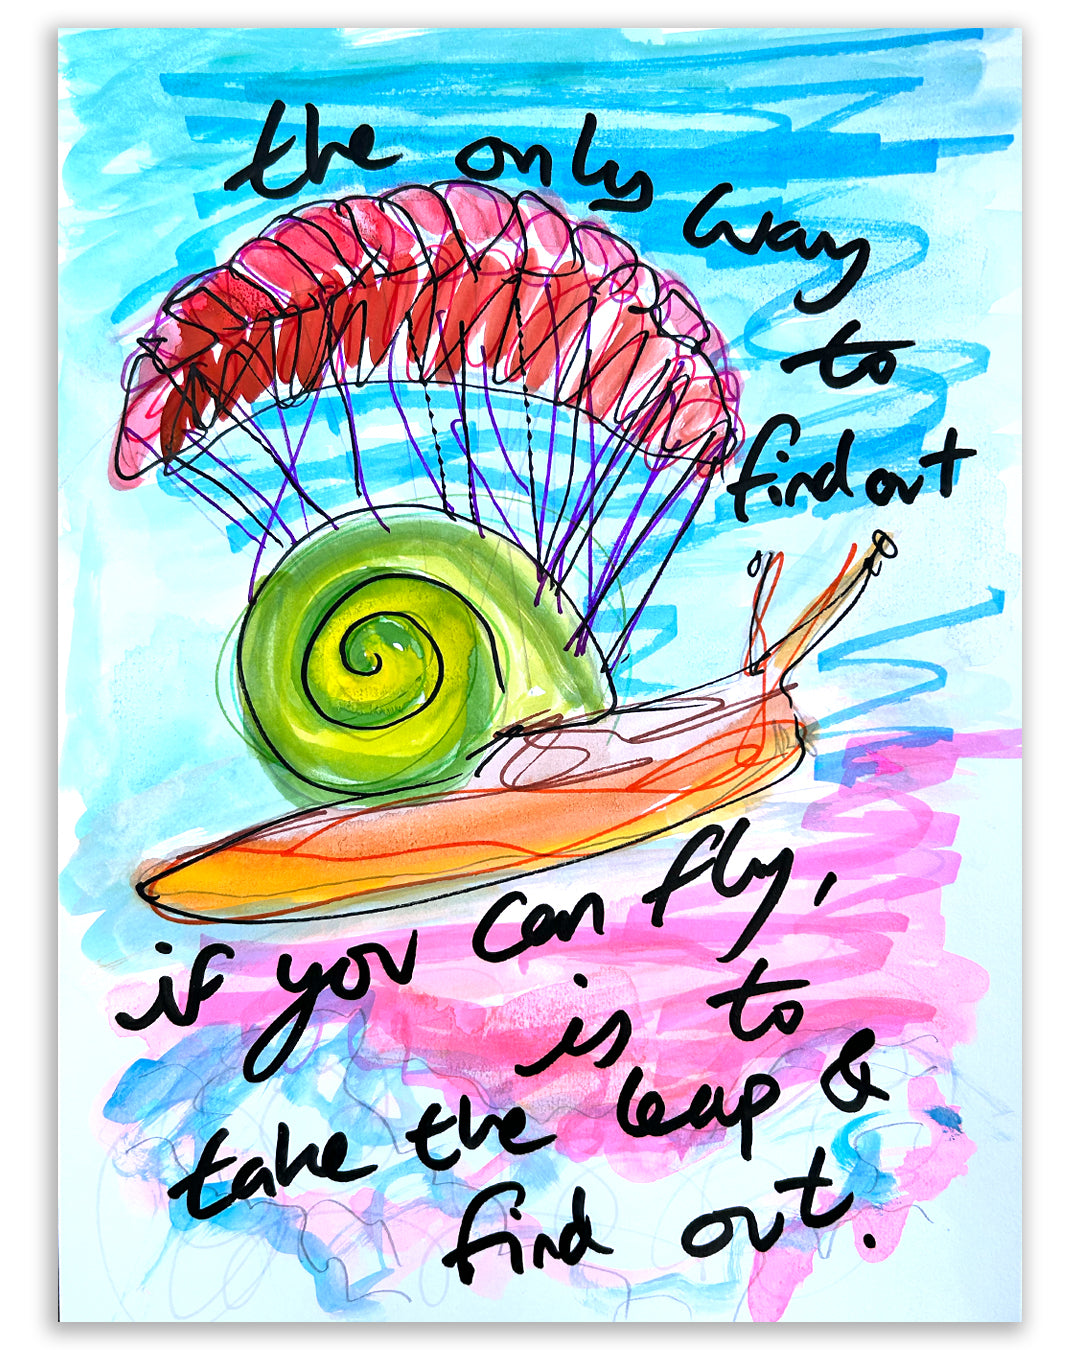 the only
way
to
find out
if you can fly,
is to
take the leap &
find out.